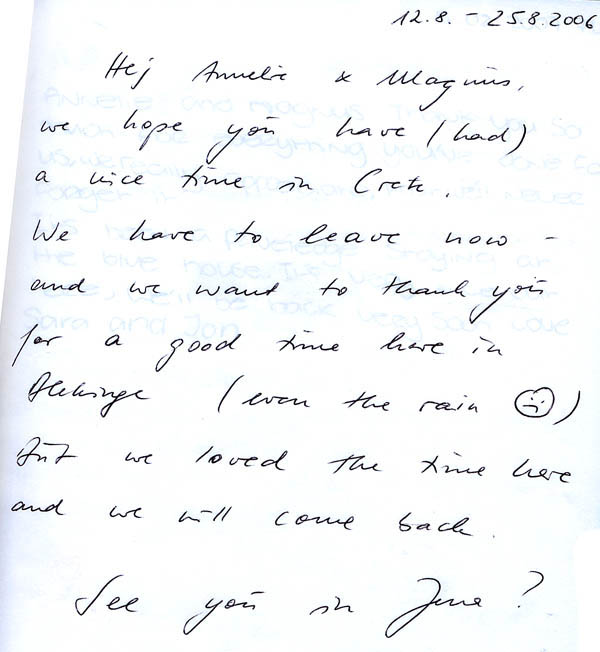 12.8. – 25.8.2006
Hej Annelie & Magnus,
we hope you have (had)
a nice time in Crete.
We have to leave now –
and we want to thank you
for a good time here in
Blekinge (even the rain ☹)
But we loved the time here
and we will come back.
See you in June?